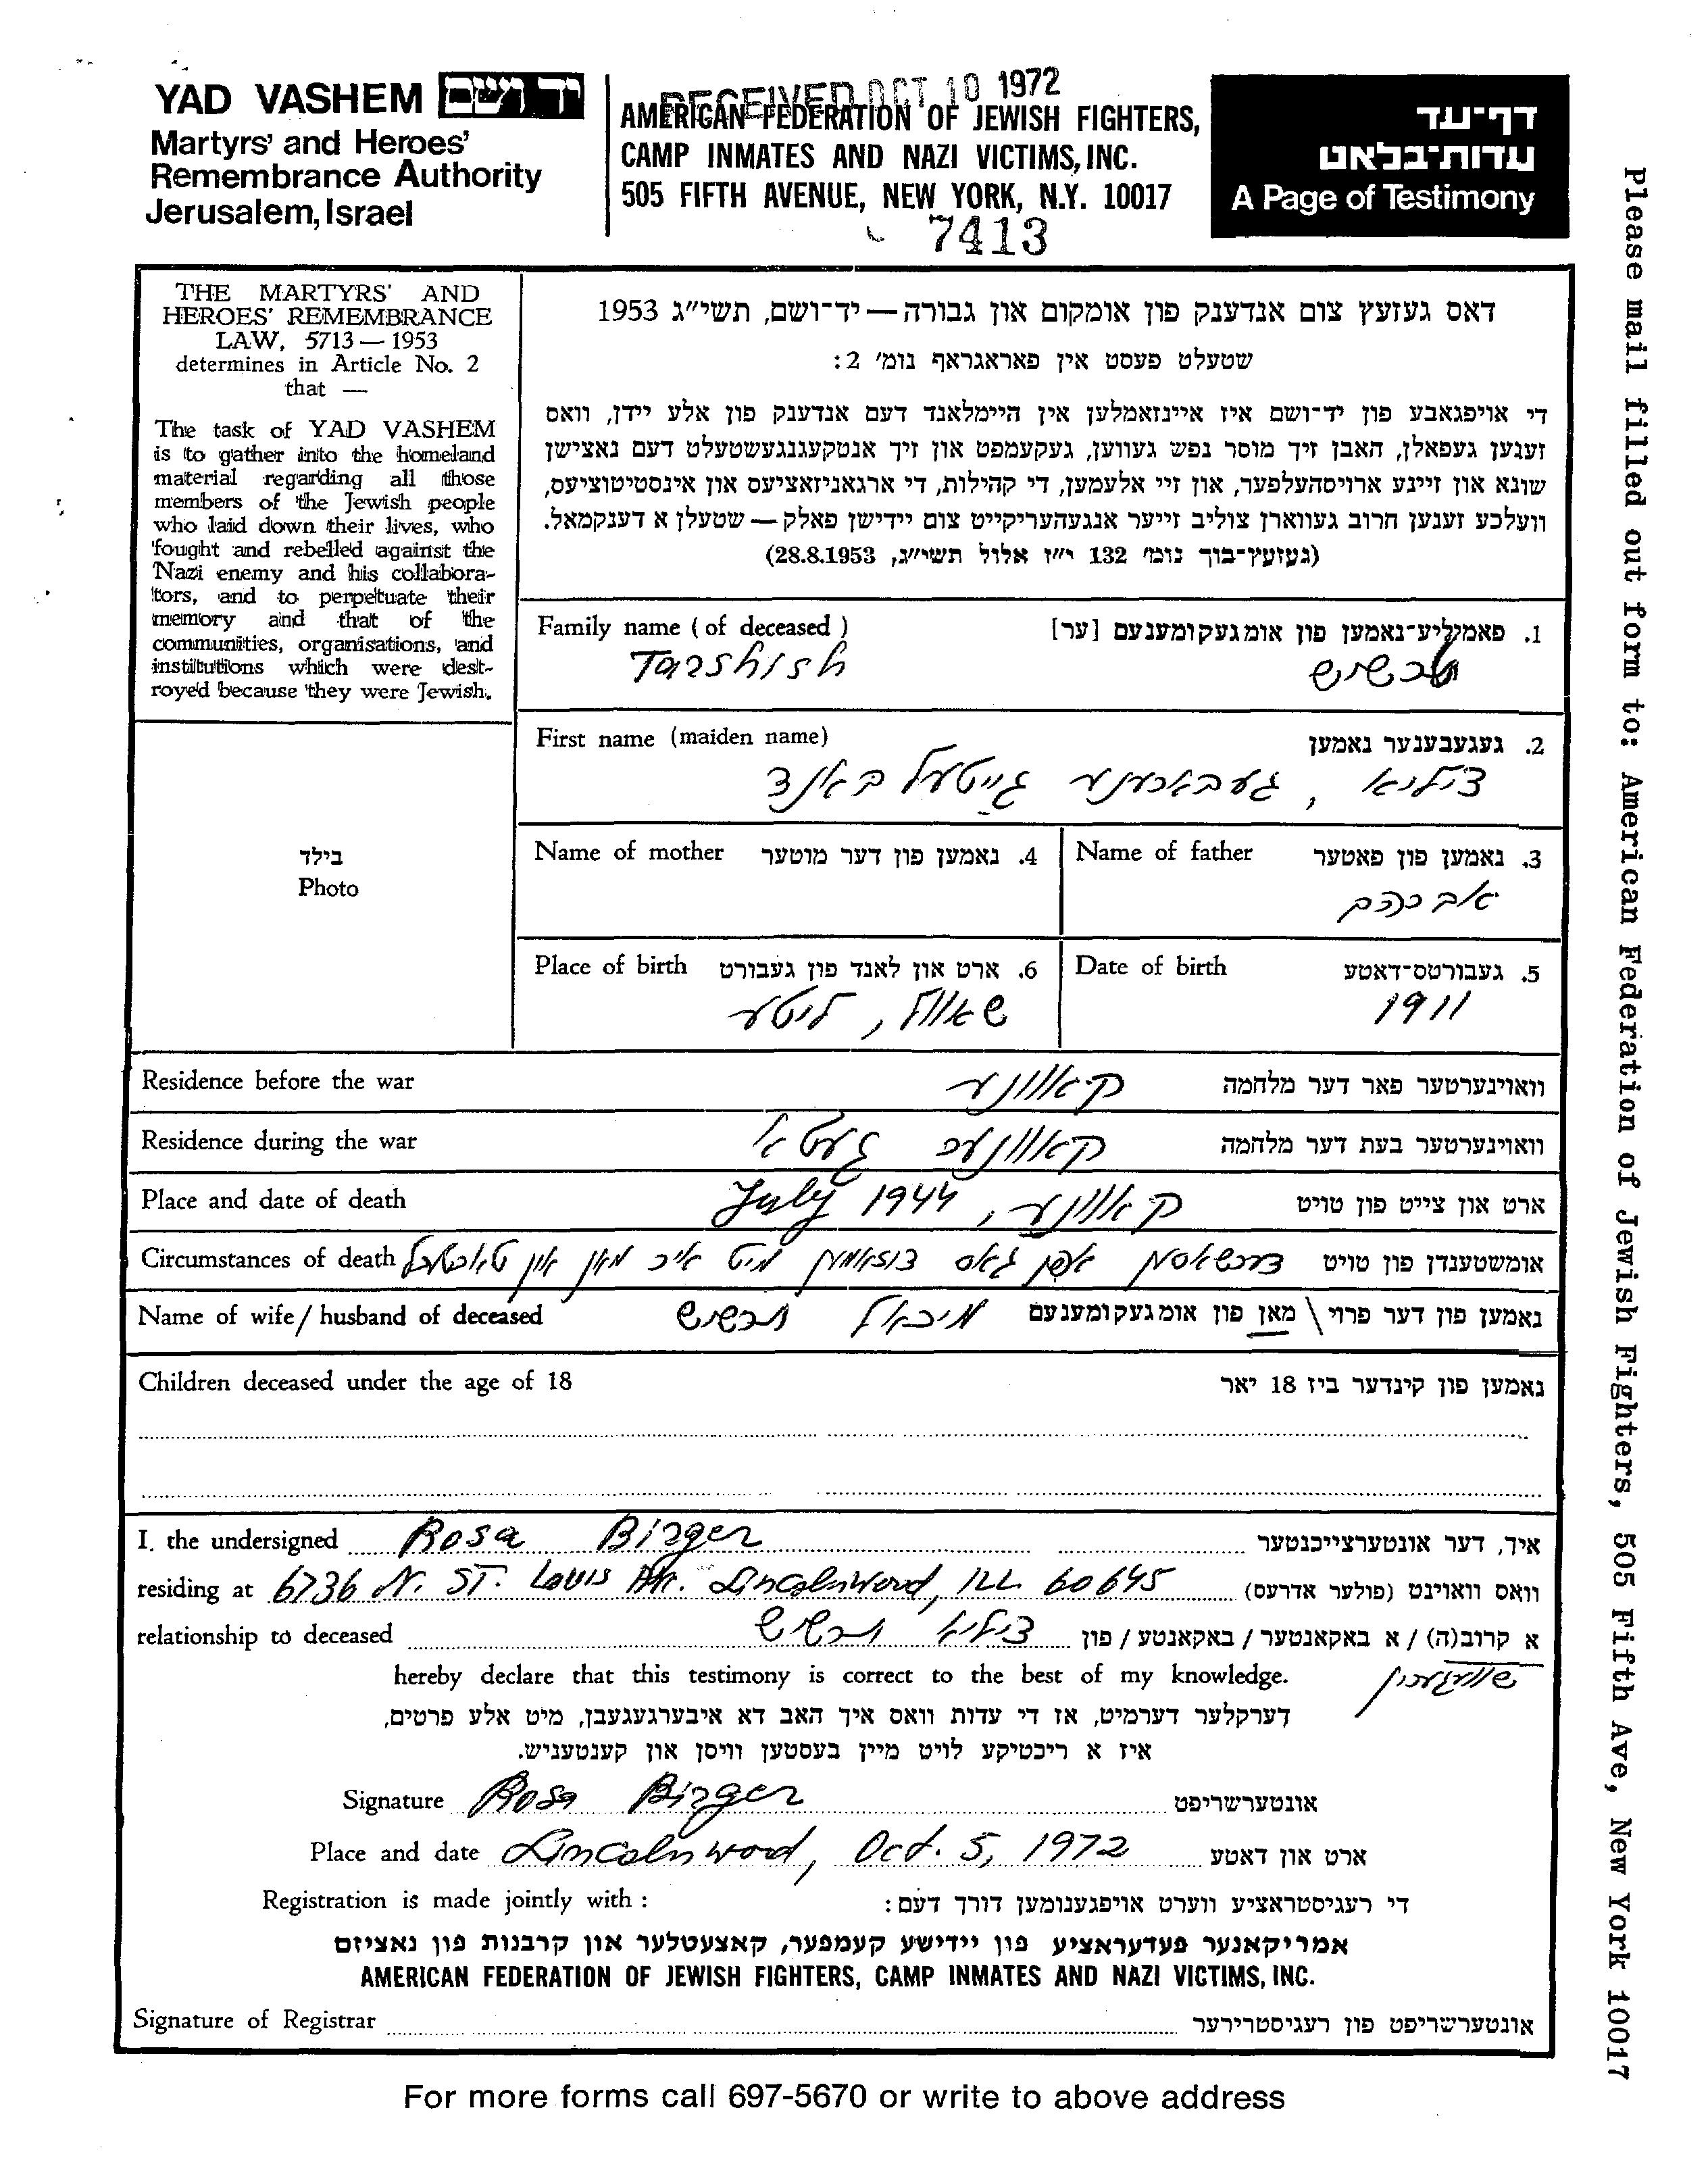 YAD VASHEM יד ושם
Martyrs' and Heroes'
Remembrance Authority
Jerusalem, Israel
RECEIVED OCT 10 1972
AMERICAN FEDERATION OF JEWISH FIGHTERS,
CAMP INMATES AND NAZI VICTIMS, INC.
505 FIFTH AVENUE, NEW YORK, N.Y. 10017
7413
דף-עד
עדות-בלאט
A Page of Testimony
Please mail filled out form to: American Federation of Jewish Fighters, 505 Fifth Ave, New York 10017
THE MARTYRS' AND
HEROES' REMEMBRANCE
LAW, 5713 — 1953
determines in Article No. 2
that —
The task of YAD VASHEM
is to gather into the homeland
material regarding all those
members of the Jewish people
who laid down their lives, who
fought and rebelled against the
Nazi enemy and his collabora-
tors, and to perpetuate their
memory and that of the
communities, organisations, and
institutions which were dest-
royed because they were Jewish.
דאס געזעץ צום אנדענק פון אומקום און גבורה — יד-ושם, תשי"ג 1953
שטעלט פעסט אין פאראגראף נומ' 2:
די אויפגאבע פון יד-ושם איז איינזאמלען אין היימלאנד דעם אנדענק פון אלע יידן, וואס
זענען געפאלן, האבן זיך מוסר נפש געווען, געקעמפט און זיך אנטקעגנגעשטעלט דעם נאצישן
שונא און זיינע ארויסהעלפער, און זיי אלעמען, די קהילות, די ארגאניזאציעס און אינסטיטוציעס,
וועלכע זענען חרוב געווארן צוליב זייער אנגעהעריקייט צום יידישן פאלק — שטעלן א דענקמאל.
(געזעץ-בוך נומ' 132 י"ז אלול תשי"ג, 28.8.1953)
Family name ( of deceased ) 1. פאמיליע-נאמען פון אומגעקומענעם [ער]
Tarshish תרשיש
First name (maiden name) 2. געגעבענער נאמען
ציליא , געבארענע גייטעל באנד
בילד
Photo
Name of mother 4. נאמען פון דער מוטער
Name of father 3. נאמען פון פאטער
אברהם
Place of birth 6. ארט און לאנד פון געבורט
שאוול, ליטע
Date of birth 5. געבורטס-דאטע
1911
Residence before the war קאוונע וואוינערטער פאר דער מלחמה
Residence during the war קאוונער געטא וואוינערטער בעת דער מלחמה
Place and date of death קאוונע, July 1944 ארט און צייט פון טויט
Circumstances of death דערשאסן אפן גאס צוזאמען מיט איר מאן און אומשטענדן פון טויט
Name of wife / husband of deceased מיכאל תרשיש נאמען פון דער פרוי \ מאן פון אומגעקומענעם
Children deceased under the age of 18 נאמען פון קינדער ביז 18 יאר
I, the undersigned Rosa Birger איך, דער אונטערצייכנטער
residing at 6736 N. ST. Louis Av. Lincolnwood, ILL. 60645 וואס וואוינט (פולער אדרעס)
relationship to deceased ציליא תרשיש א קרוב(ה) / א באקאנטער / באקאנטע / פון
שוועגערין
hereby declare that this testimony is correct to the best of my knowledge.
דערקלער דערמיט, אז די עדות וואס איך האב דא איבערגעגעבן, מיט אלע פרטים,
איז א ריכטיקע לויט מיין בעסטען וויסן און קענטעניש.
Signature Rosa Birger אונטערשריפט
Place and date Lincolnwood, Oct. 5, 1972 ארט און דאטע
Registration is made jointly with : די רעגיסטראציע ווערט אויפגענומען דורך דעם:
אמריקאנער פעדעראציע פון יידישע קעמפער, קאצעטלער און קרבנות פון נאציזם
AMERICAN FEDERATION OF JEWISH FIGHTERS, CAMP INMATES AND NAZI VICTIMS, INC.
Signature of Registrar אונטערשריפט פון רעגיסטרירער
For more forms call 697-5670 or write to above address